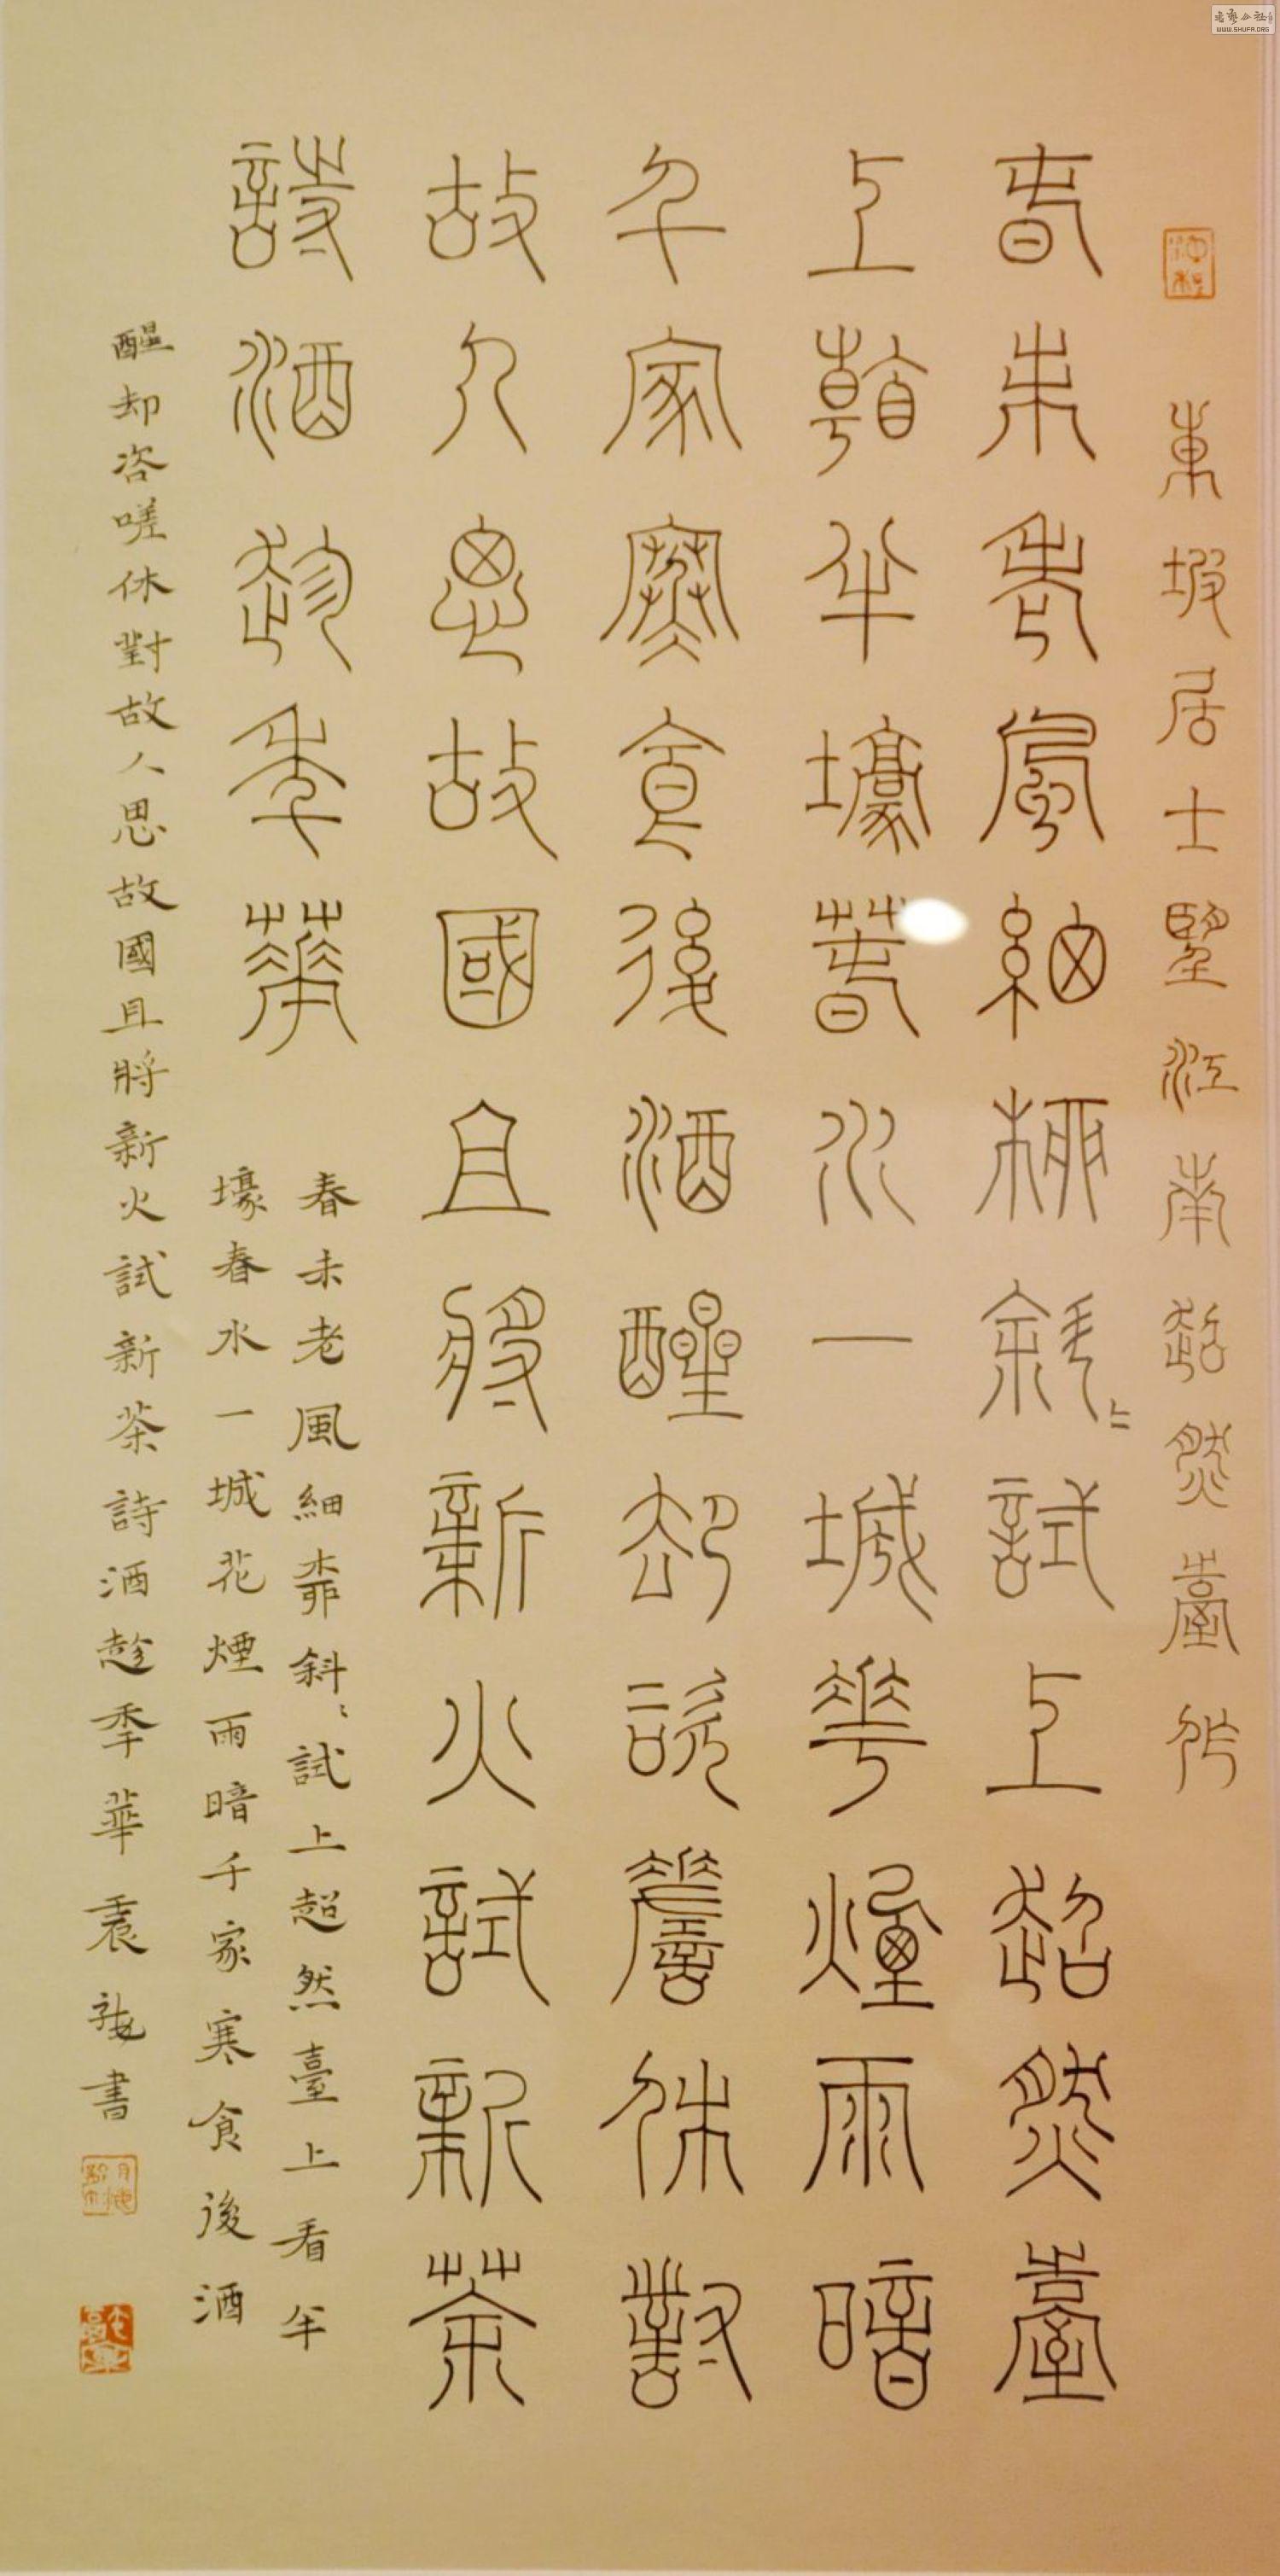 東坡居士望江南超然臺作
春未老風細桺斜〻試上超然臺
上看半壕春水一城花煙雨暗
千家寒食後酒醒卻咨嗟休對
故人思故國且將新火試新茶
詩酒趁秊華
春未老風細桺斜〻試上超然臺上看半
壕春水一城花煙雨暗千家寒食後酒
醒却咨嗟休對故人思故國且將新火試新茶詩酒趁秊華袁書
WWW.SHUFA.ORG